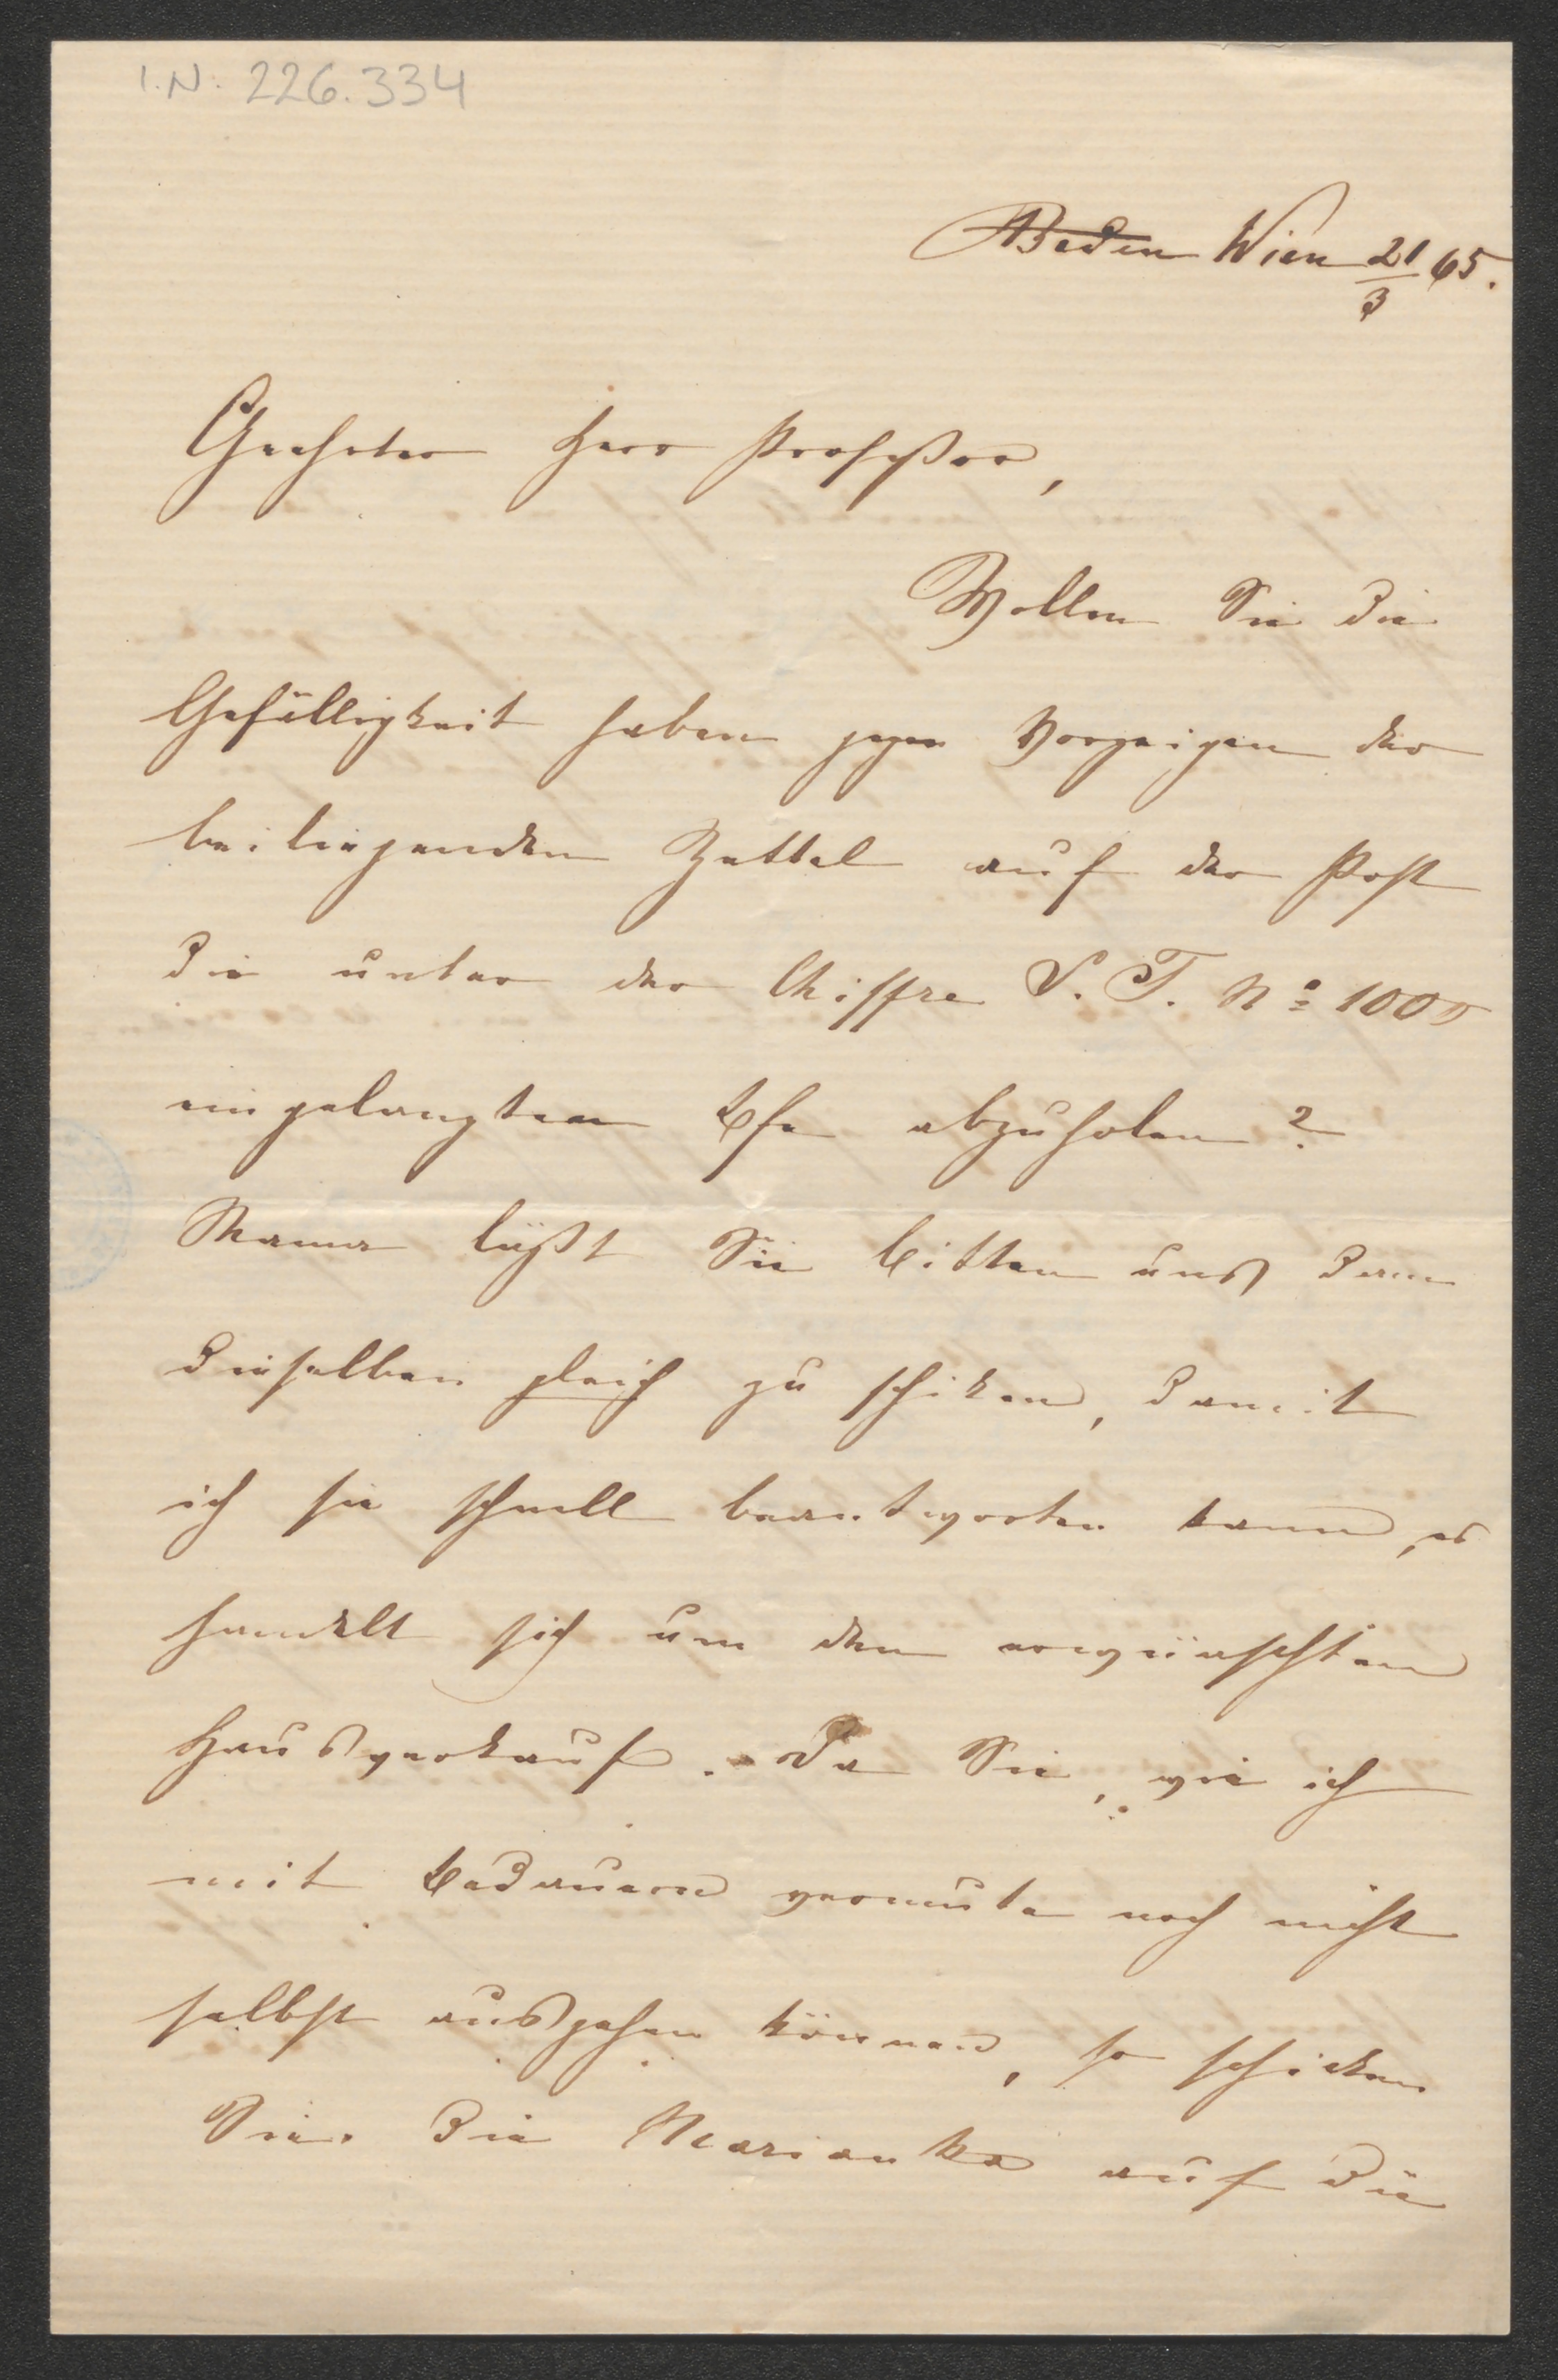 I.N. 226.334
Baden Wien 21/3 65.
Geehrter Herr Professor,
Wollen Sie die
Gefälligkeit haben gegen Vorzeigen der
beiliegenden Zettel auf der Post
die unter der Chiffre S. T. No 1000
eingelangten Bfe abzuholen?
Mama läßt Sie bitten uns dann
dieselben gleich zu schiken, damit
ich sie schnell beantworten kann, es
handelt sich um den erwünschten
Hausverkauf. Da Sie, wie ich
mit Bedauern vermute noch nicht
selbst ausgehen können, so schicken
Sie die Marianka auf die